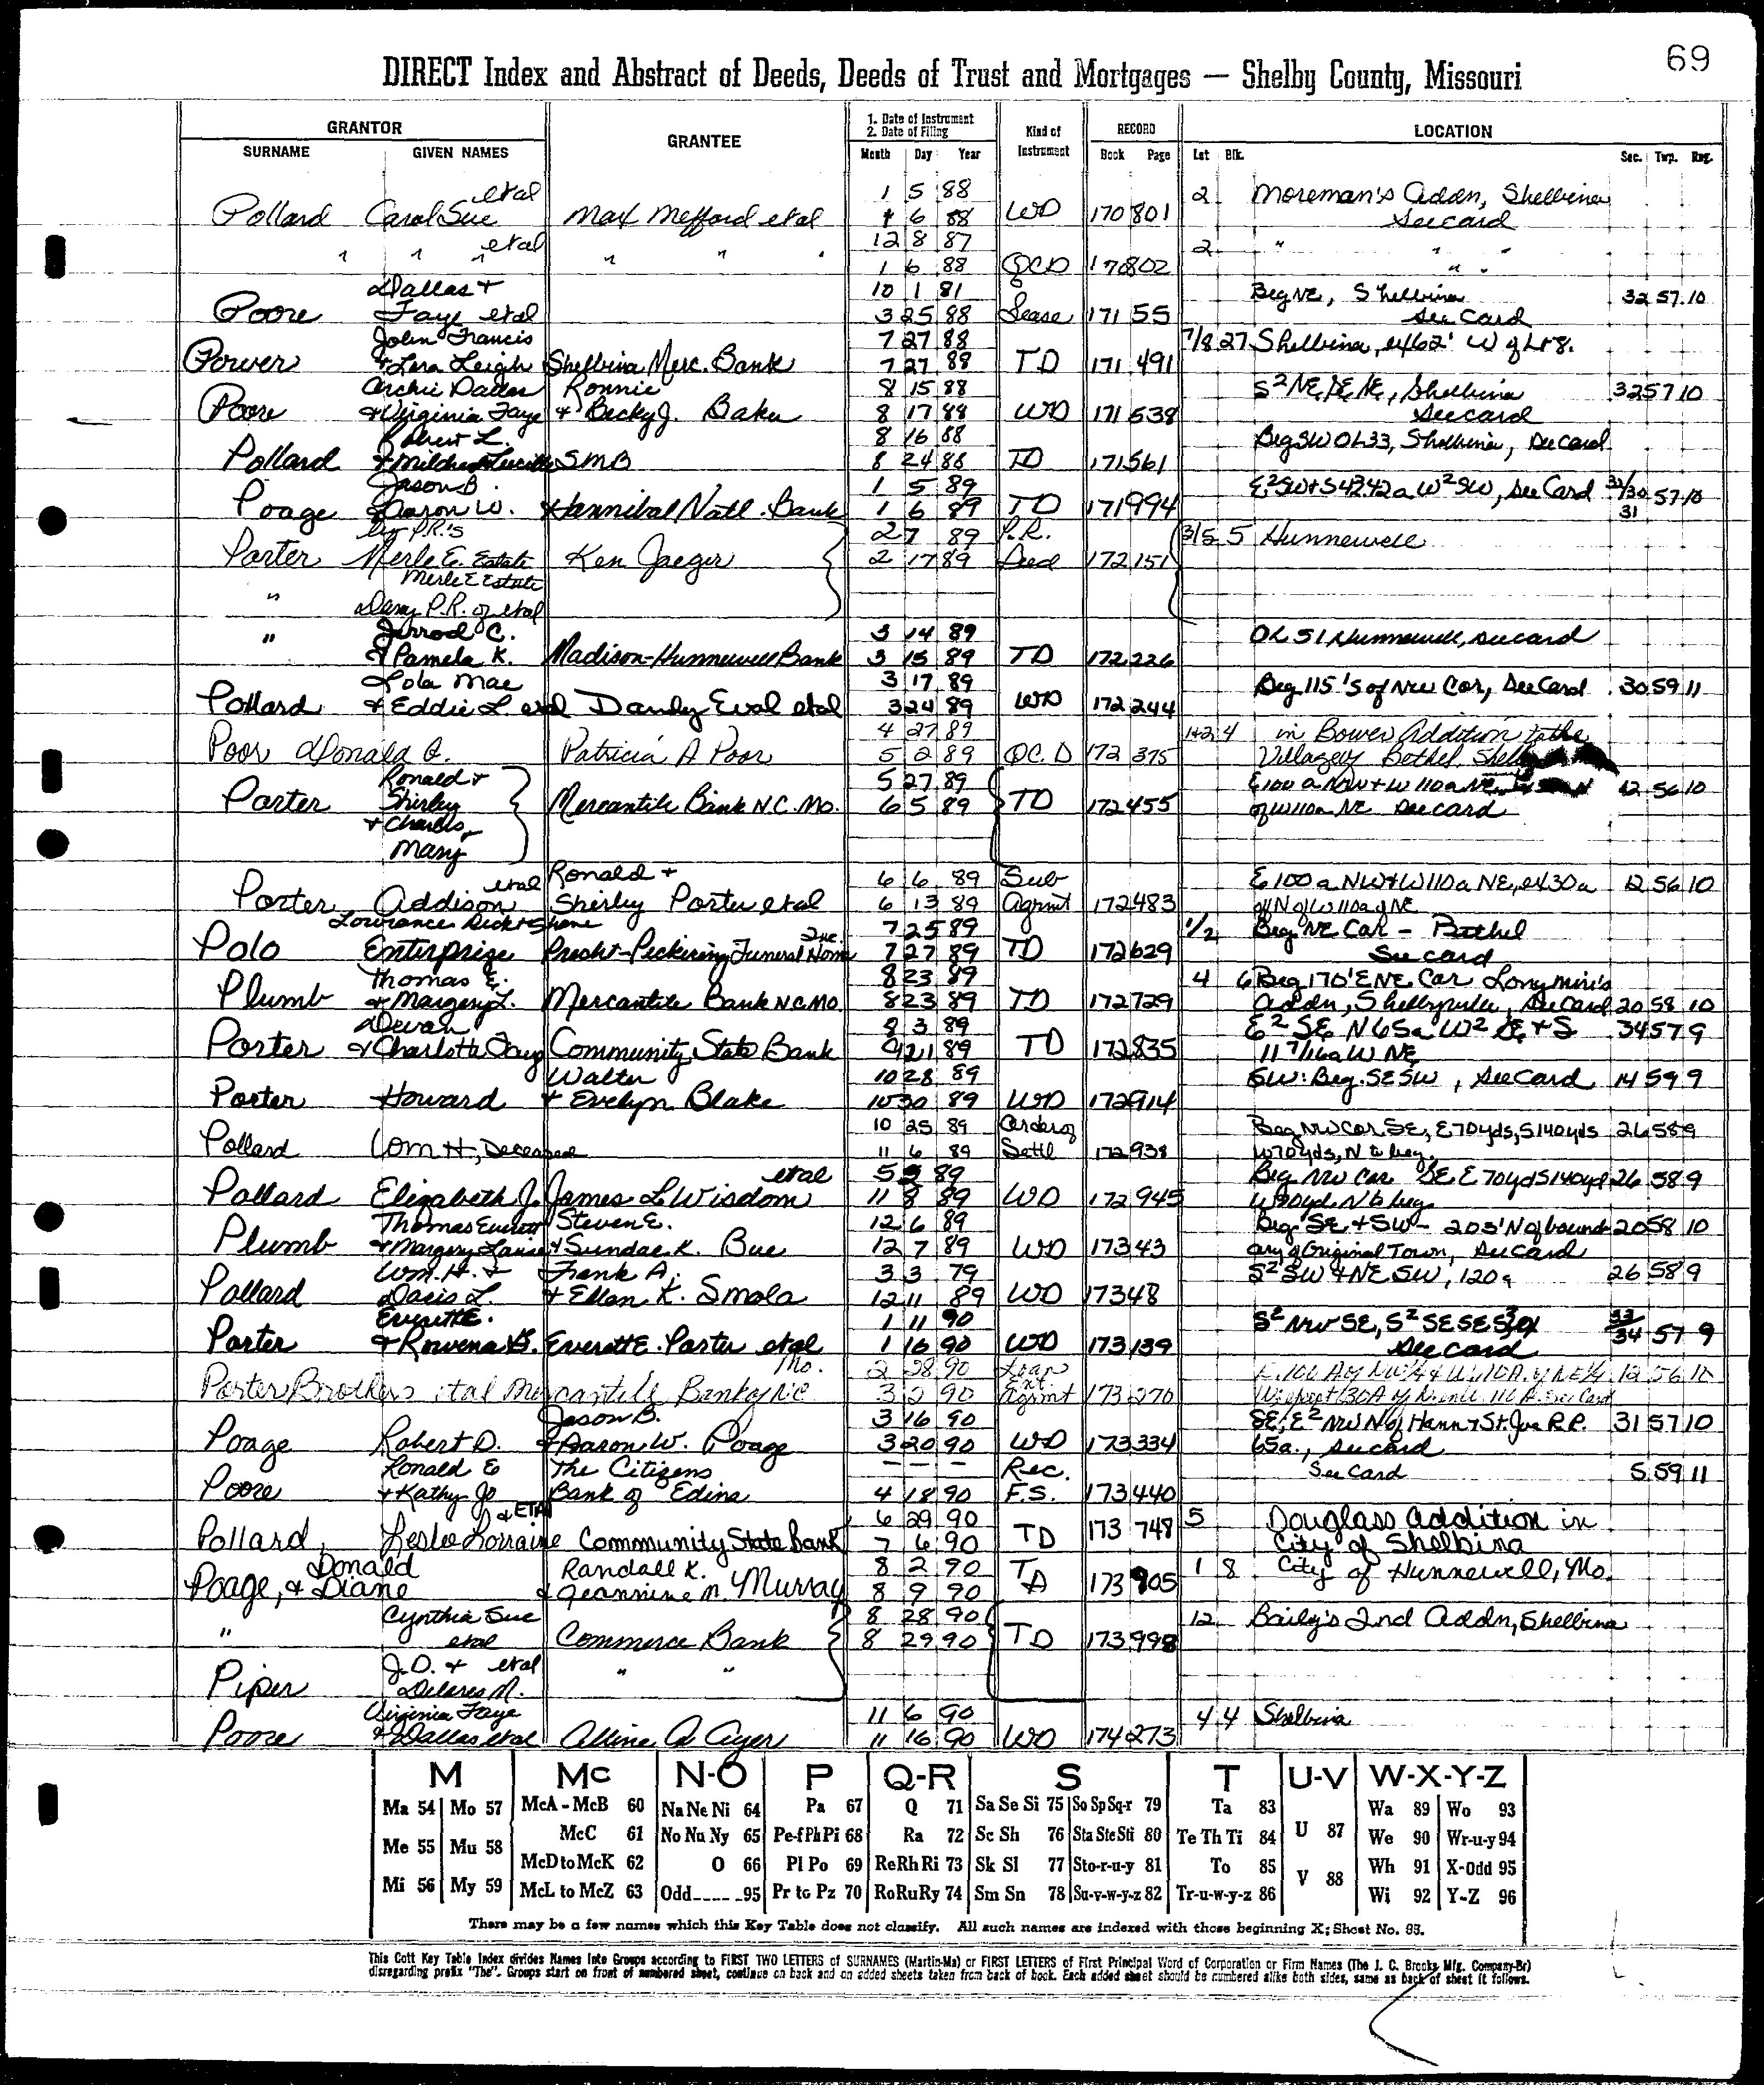 69
DIRECT Index and Abstract of Deeds, Deeds of Trust and Mortgages — Shelby County, Missouri
GRANTOR GRANTEE 1. Date of Instrument 2. Date of Filing Kind of Instrument RECORD LOCATION
SURNAME GIVEN NAMES Month Day Year Book Page Lot Blk. Sec. Twp. Rng.
etal 1 5 88 2 Moreman's Addn, Shelbina
Pollard Carol Sue Max Mefford etal 1 6 88 WD 170 801 See card
" " " etal " " " 12 8 87 2 " " "
1 6 88 QCD 170 802 " "
Dallas + 10 1 81 Beg NE, Shelbina 32 57 10
Poore Faye etal 3 25 88 Lease 171 55 See Card
John Francis 7 27 88 7/8 27 Shelbina, ex 62' W of Lt 8.
Power & Lara Leigh Shelbina Merc. Bank 7 27 88 TD 171 491
Archie Dallas Ronnie 8 15 88 S2 NE, SE, NE, Shelbina 32 57 10
Poore & Virginia Faye & Becky J. Baker 8 17 88 WD 171 538 See card
Robert L. 8 16 88 Beg SW OL 33, Shelbina, See Card
Pollard & Mildred Lucille SMB 8 24 88 TD 171 561
Jason B. 1 5 89 E2SW+S 42.42a W2 SW, See Card 57 10
Poage & Aaron W. Hannibal Natl. Bank 1 6 89 TD 171 994 31
by P.R.'s 2 7 89 P.R. 3/5 5 Hunnewell
Porter Merle E. Estate Ken Jaeger 2 17 89 Deed 172 151
Merle E Estate
" P.R. of etal
Jerrod C. 3 14 89 OL 51 Hunnewell, See card
" & Pamela K. Madison-Hunnewell Bank 3 15 89 TD 172 226
Lola Mae 3 17 89 Beg 115' S of NW Cor, See Card 30 59 11
Pollard & Eddie L. etal Danly Eval etal 3 24 89 WD 172 244
4 27 89 1+2 4 in Bower Addition to the
Poor Donald A. Patricia A Poor 5 2 89 QC.D 172 375 Village of Bethel
Ronald + 5 27 89 E100 a NW+W 110a NE 12 56 10
Porter Shirley Mercantile Bank N.C. Mo. 6 5 89 TD 172 455 of W110a NE See card
+ Charles,
Mary
etal Ronald + 6 6 89 Sub E 100 a NW+W 110a NE, ex 30a 12 56 10
Porter Addison Shirley Porter etal 6 13 89 Agrmt 172 483 of N of W 110a of NE
Lowrance Dick + Shane 7 25 89 1/2 Beg NE Cor - Bethel
Polo Enterprize Precht-Pickering Funeral Home Inc 7 27 89 TD 172 629 See card
Thomas E. 8 23 89 4 6 Beg 170' E NE Cor
Plumb & Margery L. Mercantile Bank N.C. MO. 8 23 89 TD 172 729 Addn, Shelbyville, See Card 20 58 10
Devan 8 3 89 E2 SE, N 65a W2 SE + S 34 57 9
Porter & Charlotte Faye Community State Bank 9 21 89 TD 172 835 11 7/16a W NE
Walter 10 28 89 SW: Beg. SE SW, See Card 14 59 9
Porter Howard & Evelyn Blake 10 30 89 WD 172 914
10 25 89 Order of Beg NW Cor SE, E 70 yds, S 140 yds 26 58 9
Pollard Wm H, Deceased 11 6 89 Settl 172 938 W 70 yds, N to beg.
etal 5 5 89 Beg NW Cor SE E 70yd S140yd 26 58 9
Pollard Elizabeth J. James L Wisdom 11 8 89 WD 172 945 W70yd N to beg
Thomas Everett Steven E. 12 6 89 Beg SE + SW - 203' N of bound- 20 58 10
Plumb & Margery Louise & Sundae K. Bue 12 7 89 WD 173 43 ary of Original Town, See Card
Wm. H. & Frank A. 3 3 79 S2 SW & NE SW, 120a 26 58 9
Pollard Doris L. & Ellen K. Smola 12 11 89 WD 173 48
Everett E. 1 11 90 S2 NW SE, S2 SE SE 33/34 57 9
Porter & Rowena B. Everett E. Porter etal 1 16 90 WD 173 139 See card
Mo. 2 28 90 Loan E. 100 A of NW 1/4 & W. 110 A. of NE 1/4 12 56 10
Porter Brothers etal Mercantile Bank of N.C. 3 2 90 Ext Agrmt 173 270 See Card
Jason B. 3 16 90 SE, E2 NW N of Hann & St. Joe R.R. 31 57 10
Poage Robert D. & Aaron W. Poage 3 20 90 WD 173 334 65a., See card
Ronald E The Citizens — — — Rec. See Card 5 59 11
Poore & Kathy Jo Bank of Edina 4 18 90 F.S. 173 440
& ETAL 6 29 90 5 Douglass Addition in
Pollard, Leslee Lorraine Community State Bank 7 6 90 TD 173 748 City of Shelbina
Donald Randall K. 8 2 90 T 1 8 City of Hunnewell, Mo.
Poage, & Diane & Jeannine M. Murray 8 9 90 D 173 905
Cynthia Sue 8 28 90 12 Baily's 2nd Addn, Shelbina
" etal Commerce Bank 8 29 90 TD 173 998
J.D. + etal " "
Piper Delores M.
Virginia Faye 11 6 90 4 4 Shelbina
Poore & Dallas etal Alline A Ayer 11 16 90 WD 174 273
M Mc N-O P Q-R S T U-V W-X-Y-Z
Ma 54 Mo 57 McA - McB 60 Na Ne Ni 64 Pa 67 Q 71 Sa Se Si 75 So Sp Sq-r 79 Ta 83 Wa 89 Wo 93
Me 55 Mu 58 McC 61 No Nu Ny 65 Pe-f Ph Pi 68 Ra 72 Sc Sh 76 Sta Ste Sti 80 Te Th Ti 84 U 87 We 90 Wr-u-y 94
McD to McK 62 O 66 Pl Po 69 Re Rh Ri 73 Sk Sl 77 Sto-r-u-y 81 To 85 V 88 Wh 91 X-Odd 95
Mi 56 My 59 McL to McZ 63 Odd---- -95 Pr to Pz 70 Ro Ru Ry 74 Sm Sn 78 Su-v-w-y-z 82 Tr-u-w-y-z 86 Wi 92 Y-Z 96
There may be a few names which this Key Table does not classify. All such names are indexed with those beginning X; Sheet No. 95.
This Cott Key Table Index divides Names Into Groups according to FIRST TWO LETTERS of SURNAMES (Martin-Ma) or FIRST LETTERS of First Principal Word of Corporation or Firm Names (The J. C. Brooks Mfg. Company-Br)
disregarding prefix "The". Groups start on front of numbered sheet, continue on back and on added sheets taken from back of book. Each added sheet should be numbered alike both sides, same as back of sheet it follows.